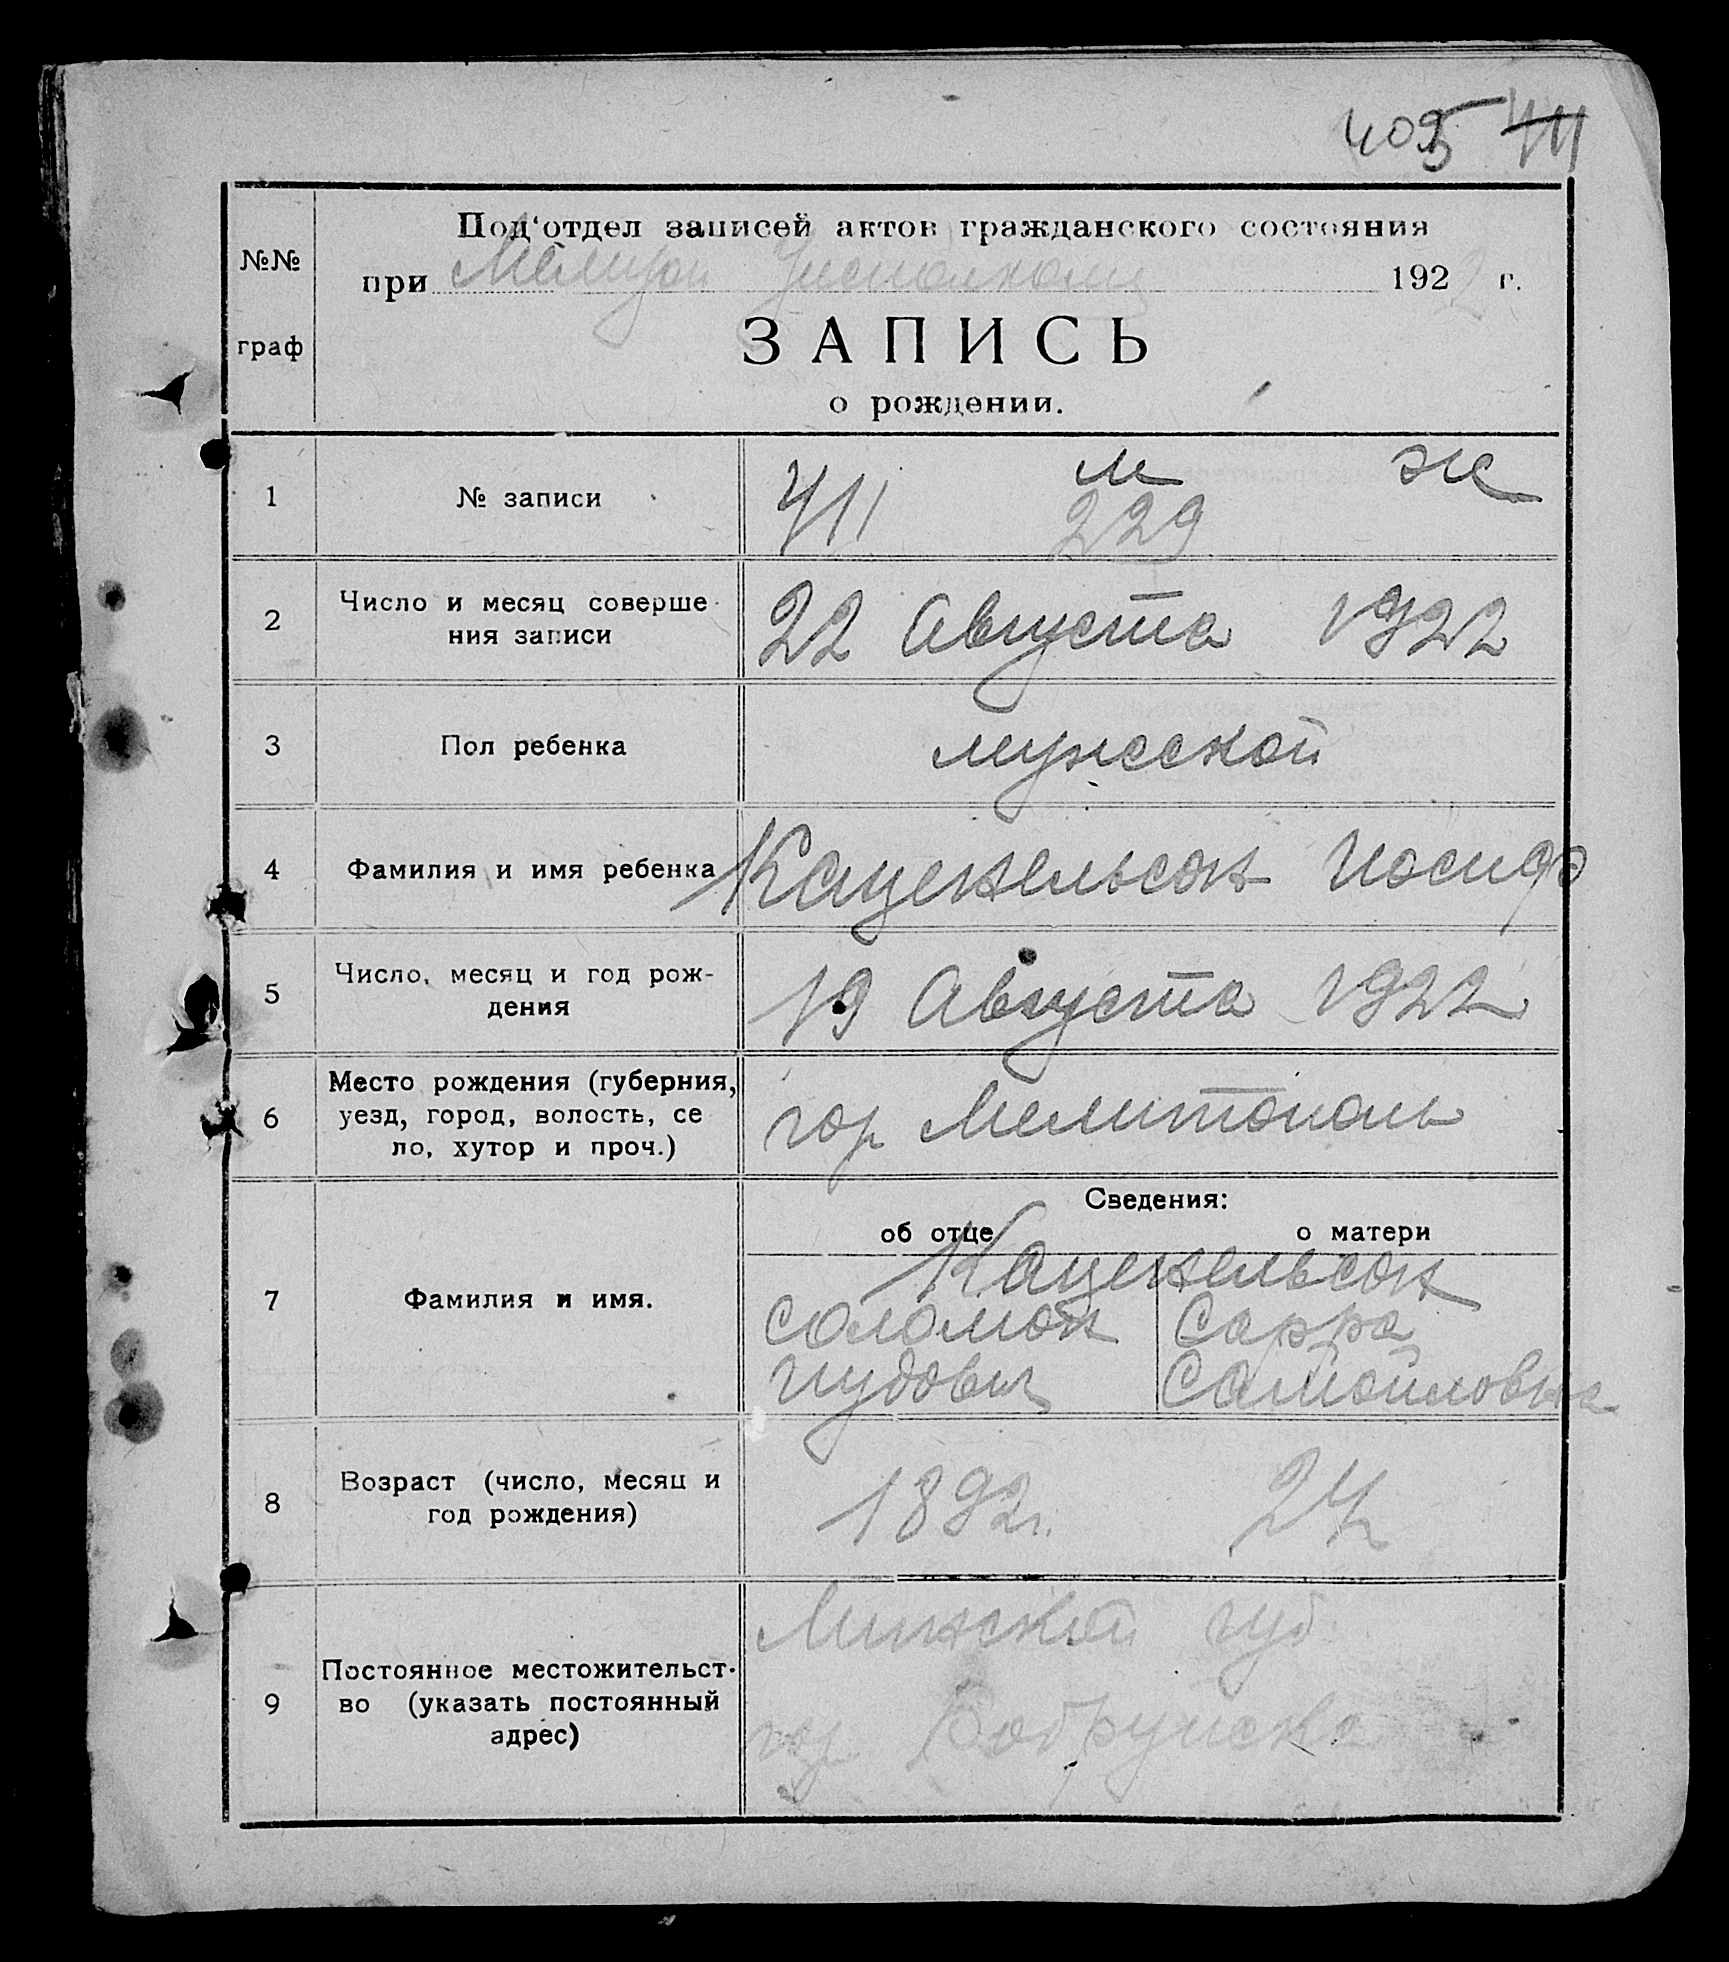 405 411
№№
граф
Под‘отдел записей актов гражданского состояния
при Мелитоп Уисполкоме 1922 г.
ЗАПИСЬ
о рождении.
1 № записи 411 м 229 ж
2 Число и месяц соверше-
ния записи
22 Августа 1922
3 Пол ребенка мужеской
4 Фамилия и имя ребенка Каценельсон Иосиф
5 Число, месяц и год рож-
дения
19 Августа 1922
6 Место рождения (губерния,
уезд, город, волость, се
ло, хутор и проч.)
гор Мелитополь
Сведения:
об отце о матери
7 Фамилия и имя.
Каценельсон
Соломон Сарра
Иудович Самойловна
8 Возраст (число, месяц и
год рождения)
1892 г. 24
9 Постоянное местожительст-
во (указать постоянный
адрес)
Минской губ
гор Бобруйска